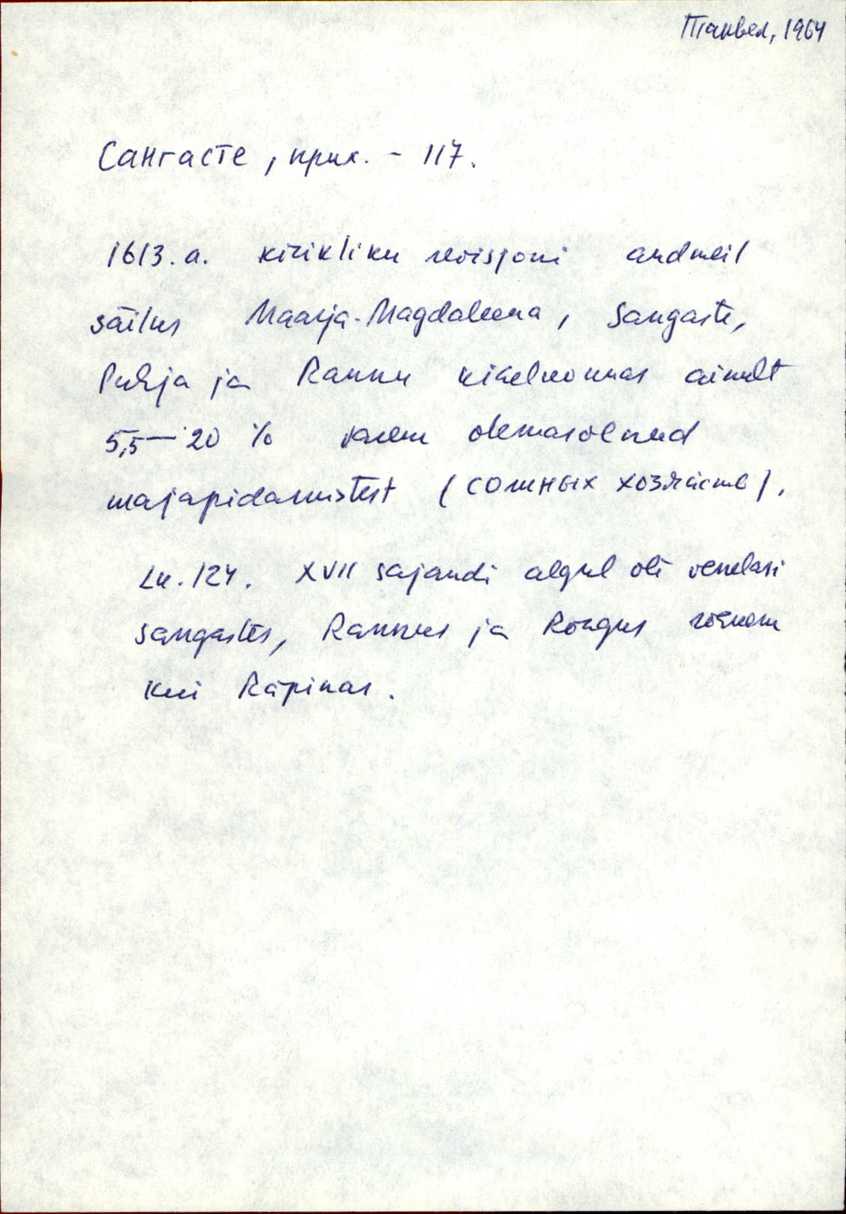 Танвел, 1964
Сангасте, прих. - 117.
1613.a. kirikliku revisjoni andmeil
säilus Maarja-Magdaleena, Sangaste,
Puhja ja Rannu kihelkonnas ainult
5,5 — 20 % varem olemasolnud
majapidamistest (сошных хозяйств).
Lk. 124. XVII sajandi algul oli venelasi
Sangastes, Rannus ja Rõngus rohkem
kui Räpinas.